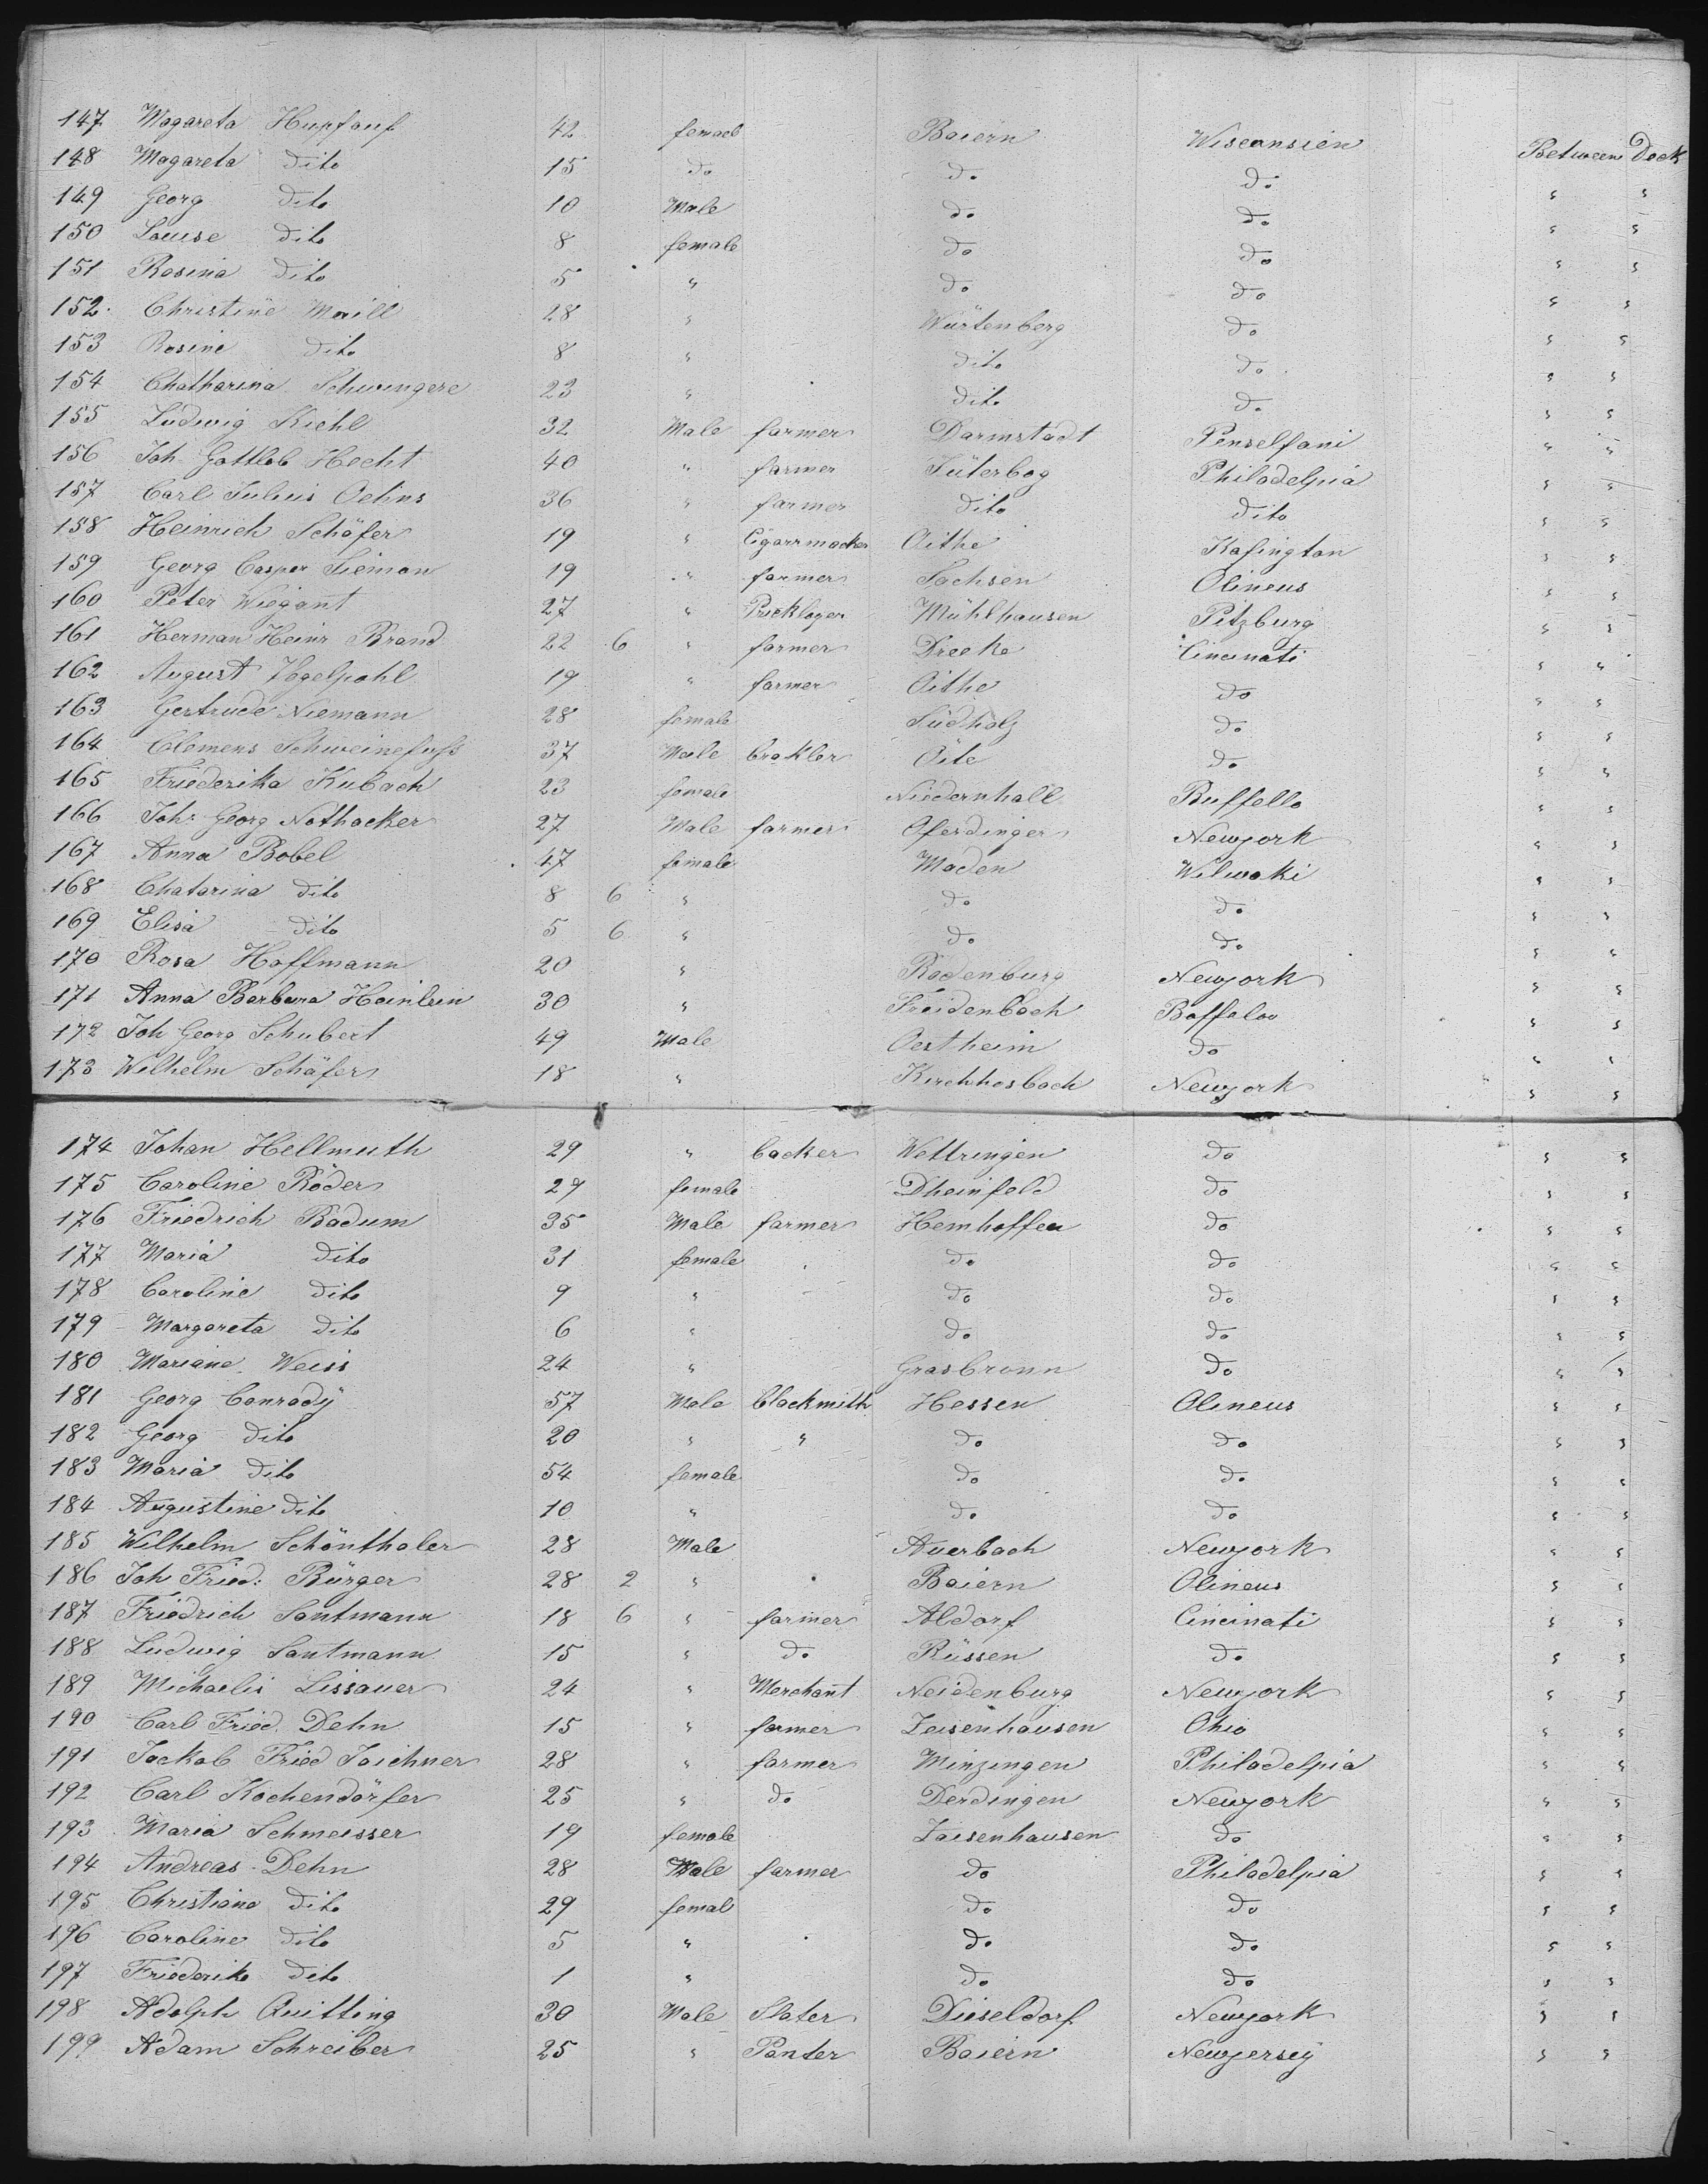 147 Magareta Hupfauf 42 femael Baiern Wisconsien Between Deck
148 Magareta dito 15 do do do " "
149 Georg dito 10 Male do do " "
150 Louise dito 8 female do do " "
151 Rosina dito 5 " do do " "
152 Christine Maill 28 " Würtenberg do " "
153 Rosine dito 8 " dito do " "
154 Chatharina Schwingere 23 " dito do " "
155 Ludwig Kiehl 32 Male farmer Darmstadt Penselfani " "
156 Joh Gottlob Hecht 40 " farmer Jüterbog Philadelpia " "
157 Carl Julius Oelins 36 " farmer dito dito " "
158 Heinrich Schäfer 19 " Cigarrmacker Oithe Kafington " "
159 Georg Casper Sieman 19 " farmer Sachsen Olineus " "
160 Peter Wiegant 27 " Mühlhausen Pitzburg " "
161 Herman Heinr Brand 22 6 " farmer Dreeke Cincinati " "
162 August Vogelpohl 19 " farmer Oithe do " "
163 Gertrude Niemann 28 female Südholz do " "
164 Clemens Schweinefuss 37 Male Oite do " "
165 Friederika Kubach 23 female Niedernhall Buffello " "
166 Joh: Georg Nothacker 27 Male farmer Oferdinger Newyork " "
167 Anna Bobel 47 female Maden Wilwaki " "
168 Chatarina dito 8 6 " do do " "
169 Elisa dito 5 6 " do do " "
170 Rosa Hoffmann 20 " Radenburg Newyork " "
171 Anna Barbara Heinlein 30 " Freidenbach Boffaloo " "
172 Joh Georg Schubert 49 Male Oestheim do " "
173 Wilhelm Schäfer 18 " Kirchhosbach Newyork " "
174 Johan Hellmuth 29 " backer Wettringen do " "
175 Caroline Röder 29 female Dheinfeld do " "
176 Friedrich Badum 35 Male farmer Hemhoffen do " "
177 Maria dito 31 female do do " "
178 Caroline dito 9 " do do " "
179 Margareta dito 6 " do do " "
180 Mariane Weiss 24 " Grasbronn do " "
181 Georg Conrady 57 Male blackmith Hessen Olineus " "
182 Georg dito 20 " " do do " "
183 Maria dito 54 female do do " "
184 Augustine dito 10 " do do " "
185 Wilhelm Schönthaler 28 Male Auerbach Newyork " "
186 Joh Fried: Bürger 28 2 " Baiern Olineus " "
187 Friedrich Santmann 18 6 " farmer Aldorf Cincinati " "
188 Ludwig Santmann 15 " do Rüssen do " "
189 Michaelis Lissauer 24 " Merchant Neidenburg Newyork " "
190 Carl Fried. Dehn 15 " farmer Zeisenhausen Ohio " "
191 Jackob Fried Joichner 28 " farmer Minzingen Philadelpia " "
192 Carl Kochendörfer 25 " do Derdingen Newyork " "
193 Maria Schmeisser 19 female Zaisenhausen do " "
194 Andreas Dehn 28 Male farmer do Philadelpia " "
195 Christiana dito 29 femal do do " "
196 Caroline dito 5 " do do " "
197 Friederike dito 1 " do do " "
198 Adolph Quitting 30 Male Slater Düseldorf Newyork " "
199 Adam Schreiber 25 " Panter Baiern Newjersey " "